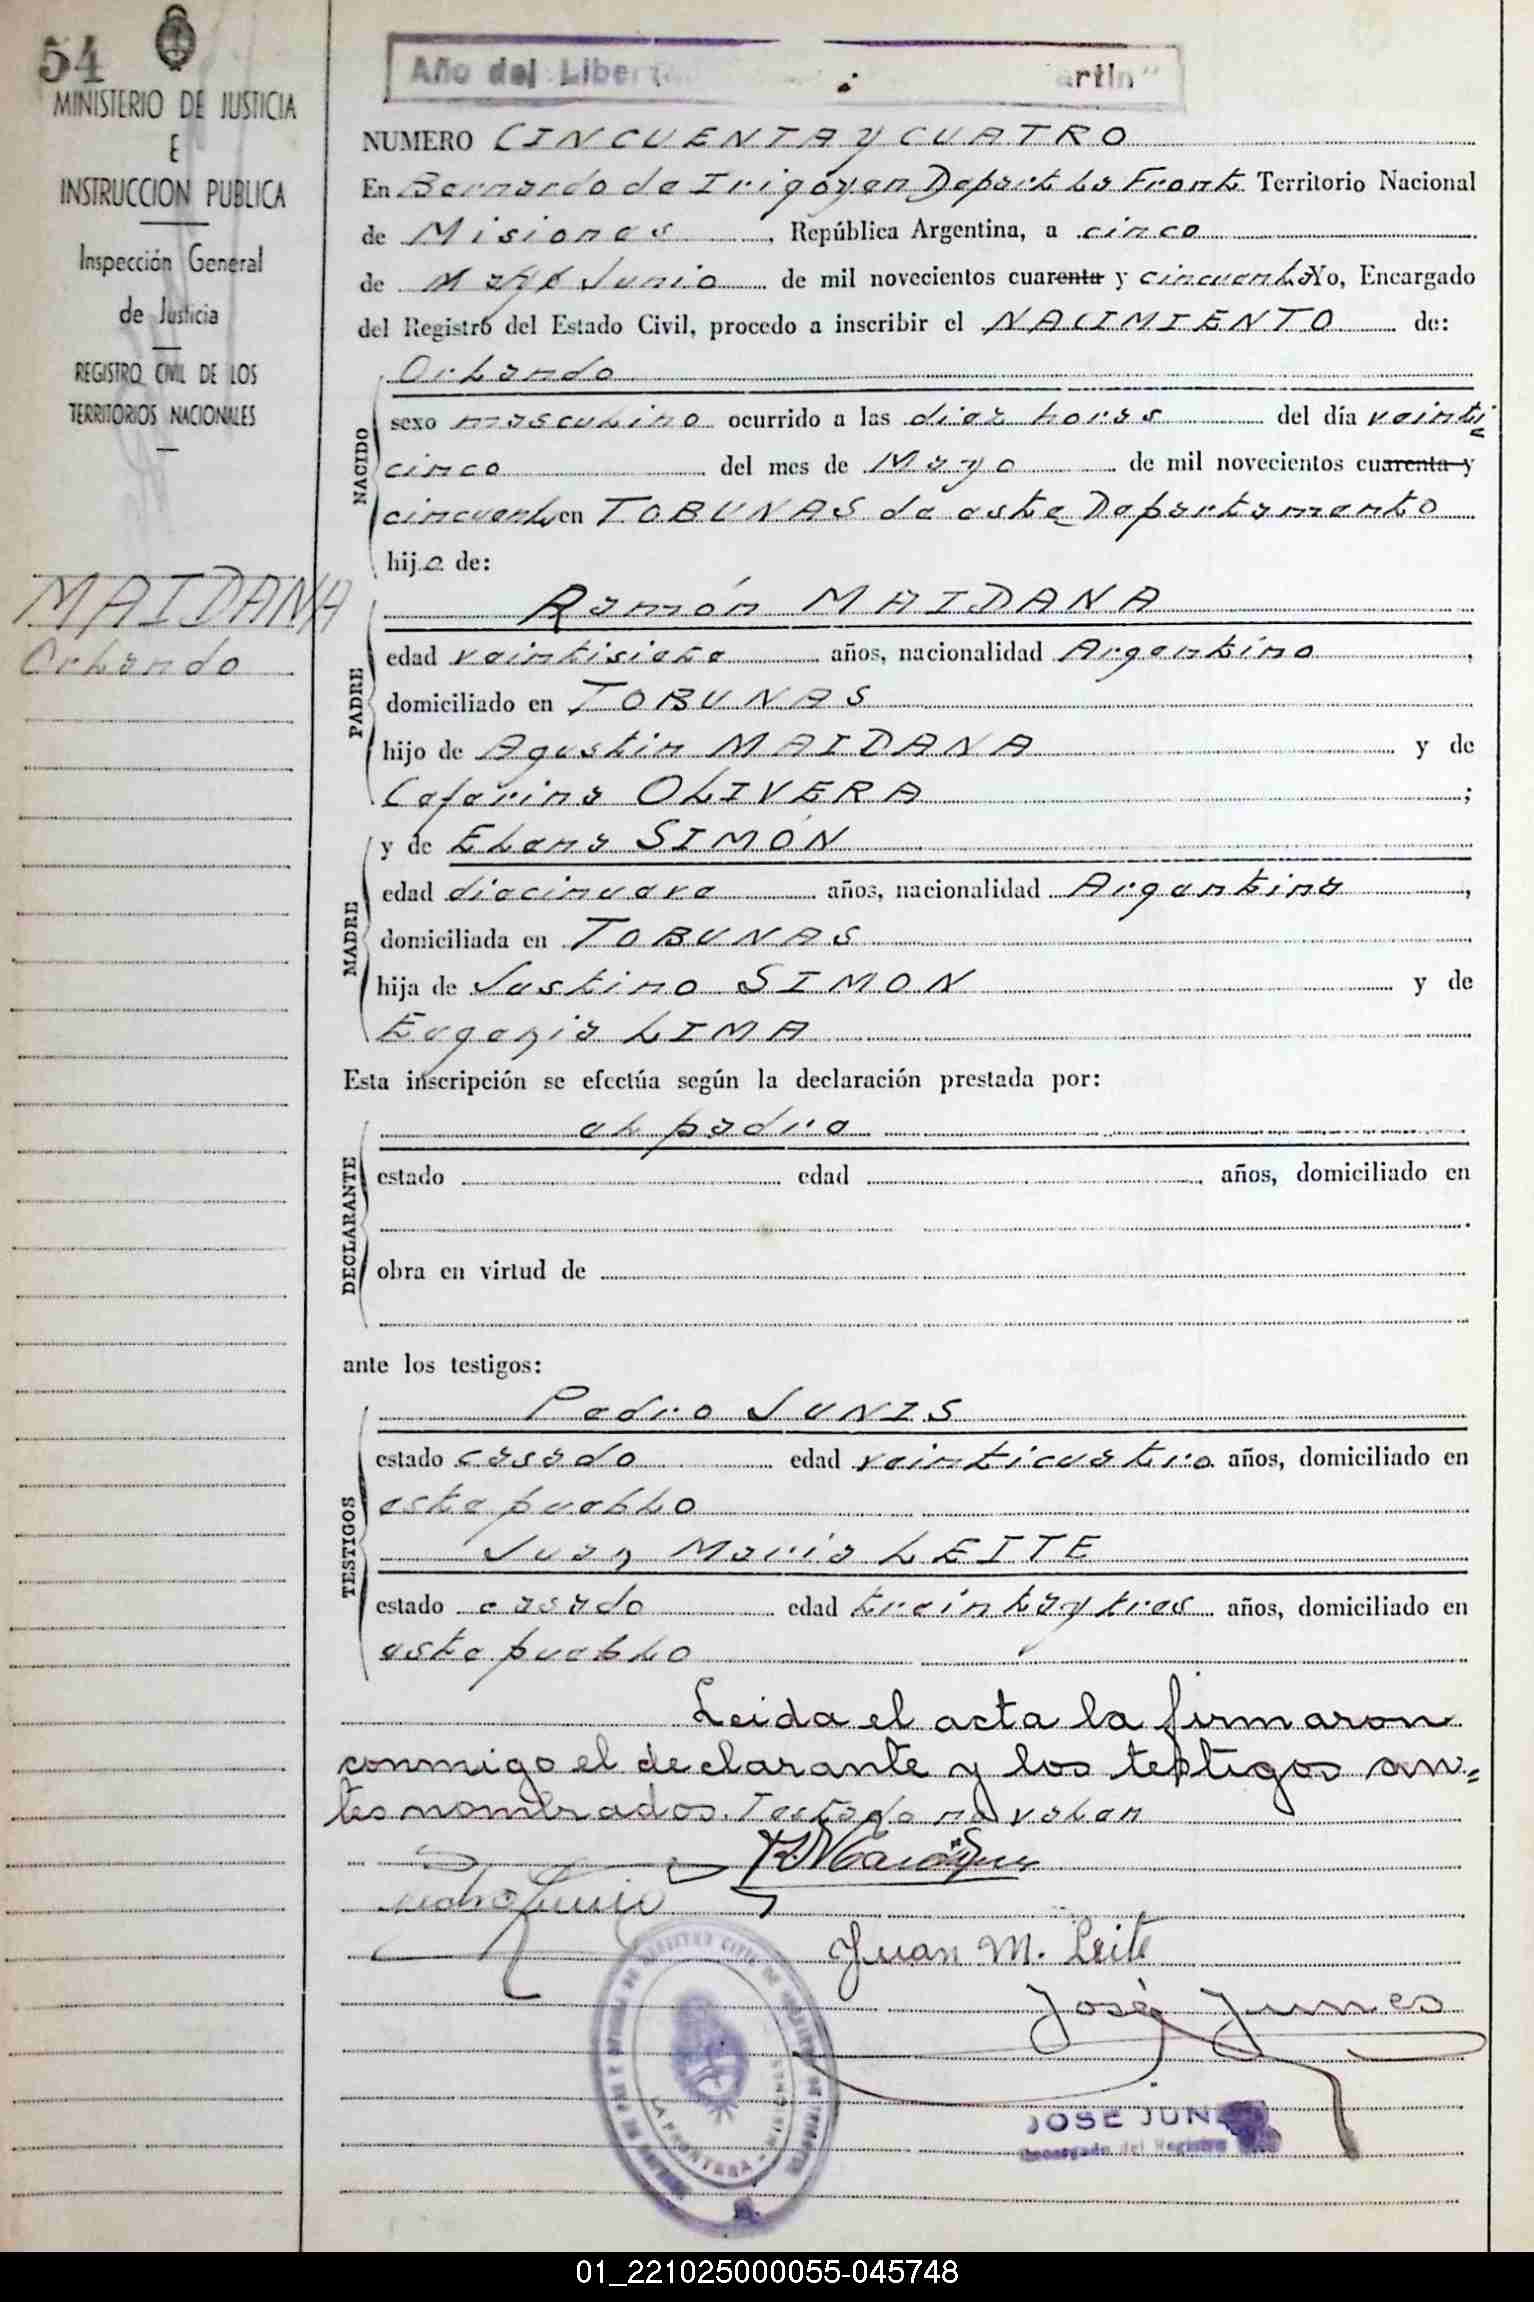 54
MINISTERIO DE JUSTICIA
E
INSTRUCCION PUBLICA
Inspección General
de Justicia
REGISTRO CIVIL DE LOS
TERRITORIOS NACIONALES
MAIDANA
Orlando
Año del Libert artin"
NUMERO CINCUENTA y CUATRO
En Bernardo de Irigoyen Depart La Front. Territorio Nacional
de Misiones, República Argentina, a cinco
de Mayo Junio de mil novecientos cuarenta y cincuenta Yo, Encargado
del Registro del Estado Civil, procedo a inscribir el NACIMIENTO de:
NACIDO
Orlando
sexo masculino ocurrido a las diez horas del día veinti
cinco del mes de Mayo de mil novecientos cuarenta y
cincuenta en TOBUNAS de este Departamento
hijo de:
PADRE
Ramón MAIDANA
edad veintisiete años, nacionalidad Argentino,
domiciliado en TOBUNAS
hijo de Agustin MAIDANA y de
Ceferina OLIVERA;
MADRE
y de Elena SIMÓN
edad diecinueve años, nacionalidad Argentina,
domiciliada en TOBUNAS
hija de Justino SIMON y de
Eugenia LIMA
Esta inscripción se efectúa según la declaración prestada por:
DECLARANTE
el padre
estado edad años, domiciliado en
obra en virtud de
ante los testigos:
TESTIGOS
Pedro JUNIS
estado casado edad veinticuatro años, domiciliado en
este pueblo
Juan Maria LEITE
estado casado edad treinta y tres años, domiciliado en
este pueblo
Leida el acta la firmaron
conmigo el declarante y los testigos an=
tes nombrados. Testado no valen
Juan M. Leite
José Junes
LA FRONTERA
JOSE JUN
Encargado del Registro
01_221025000055-045748